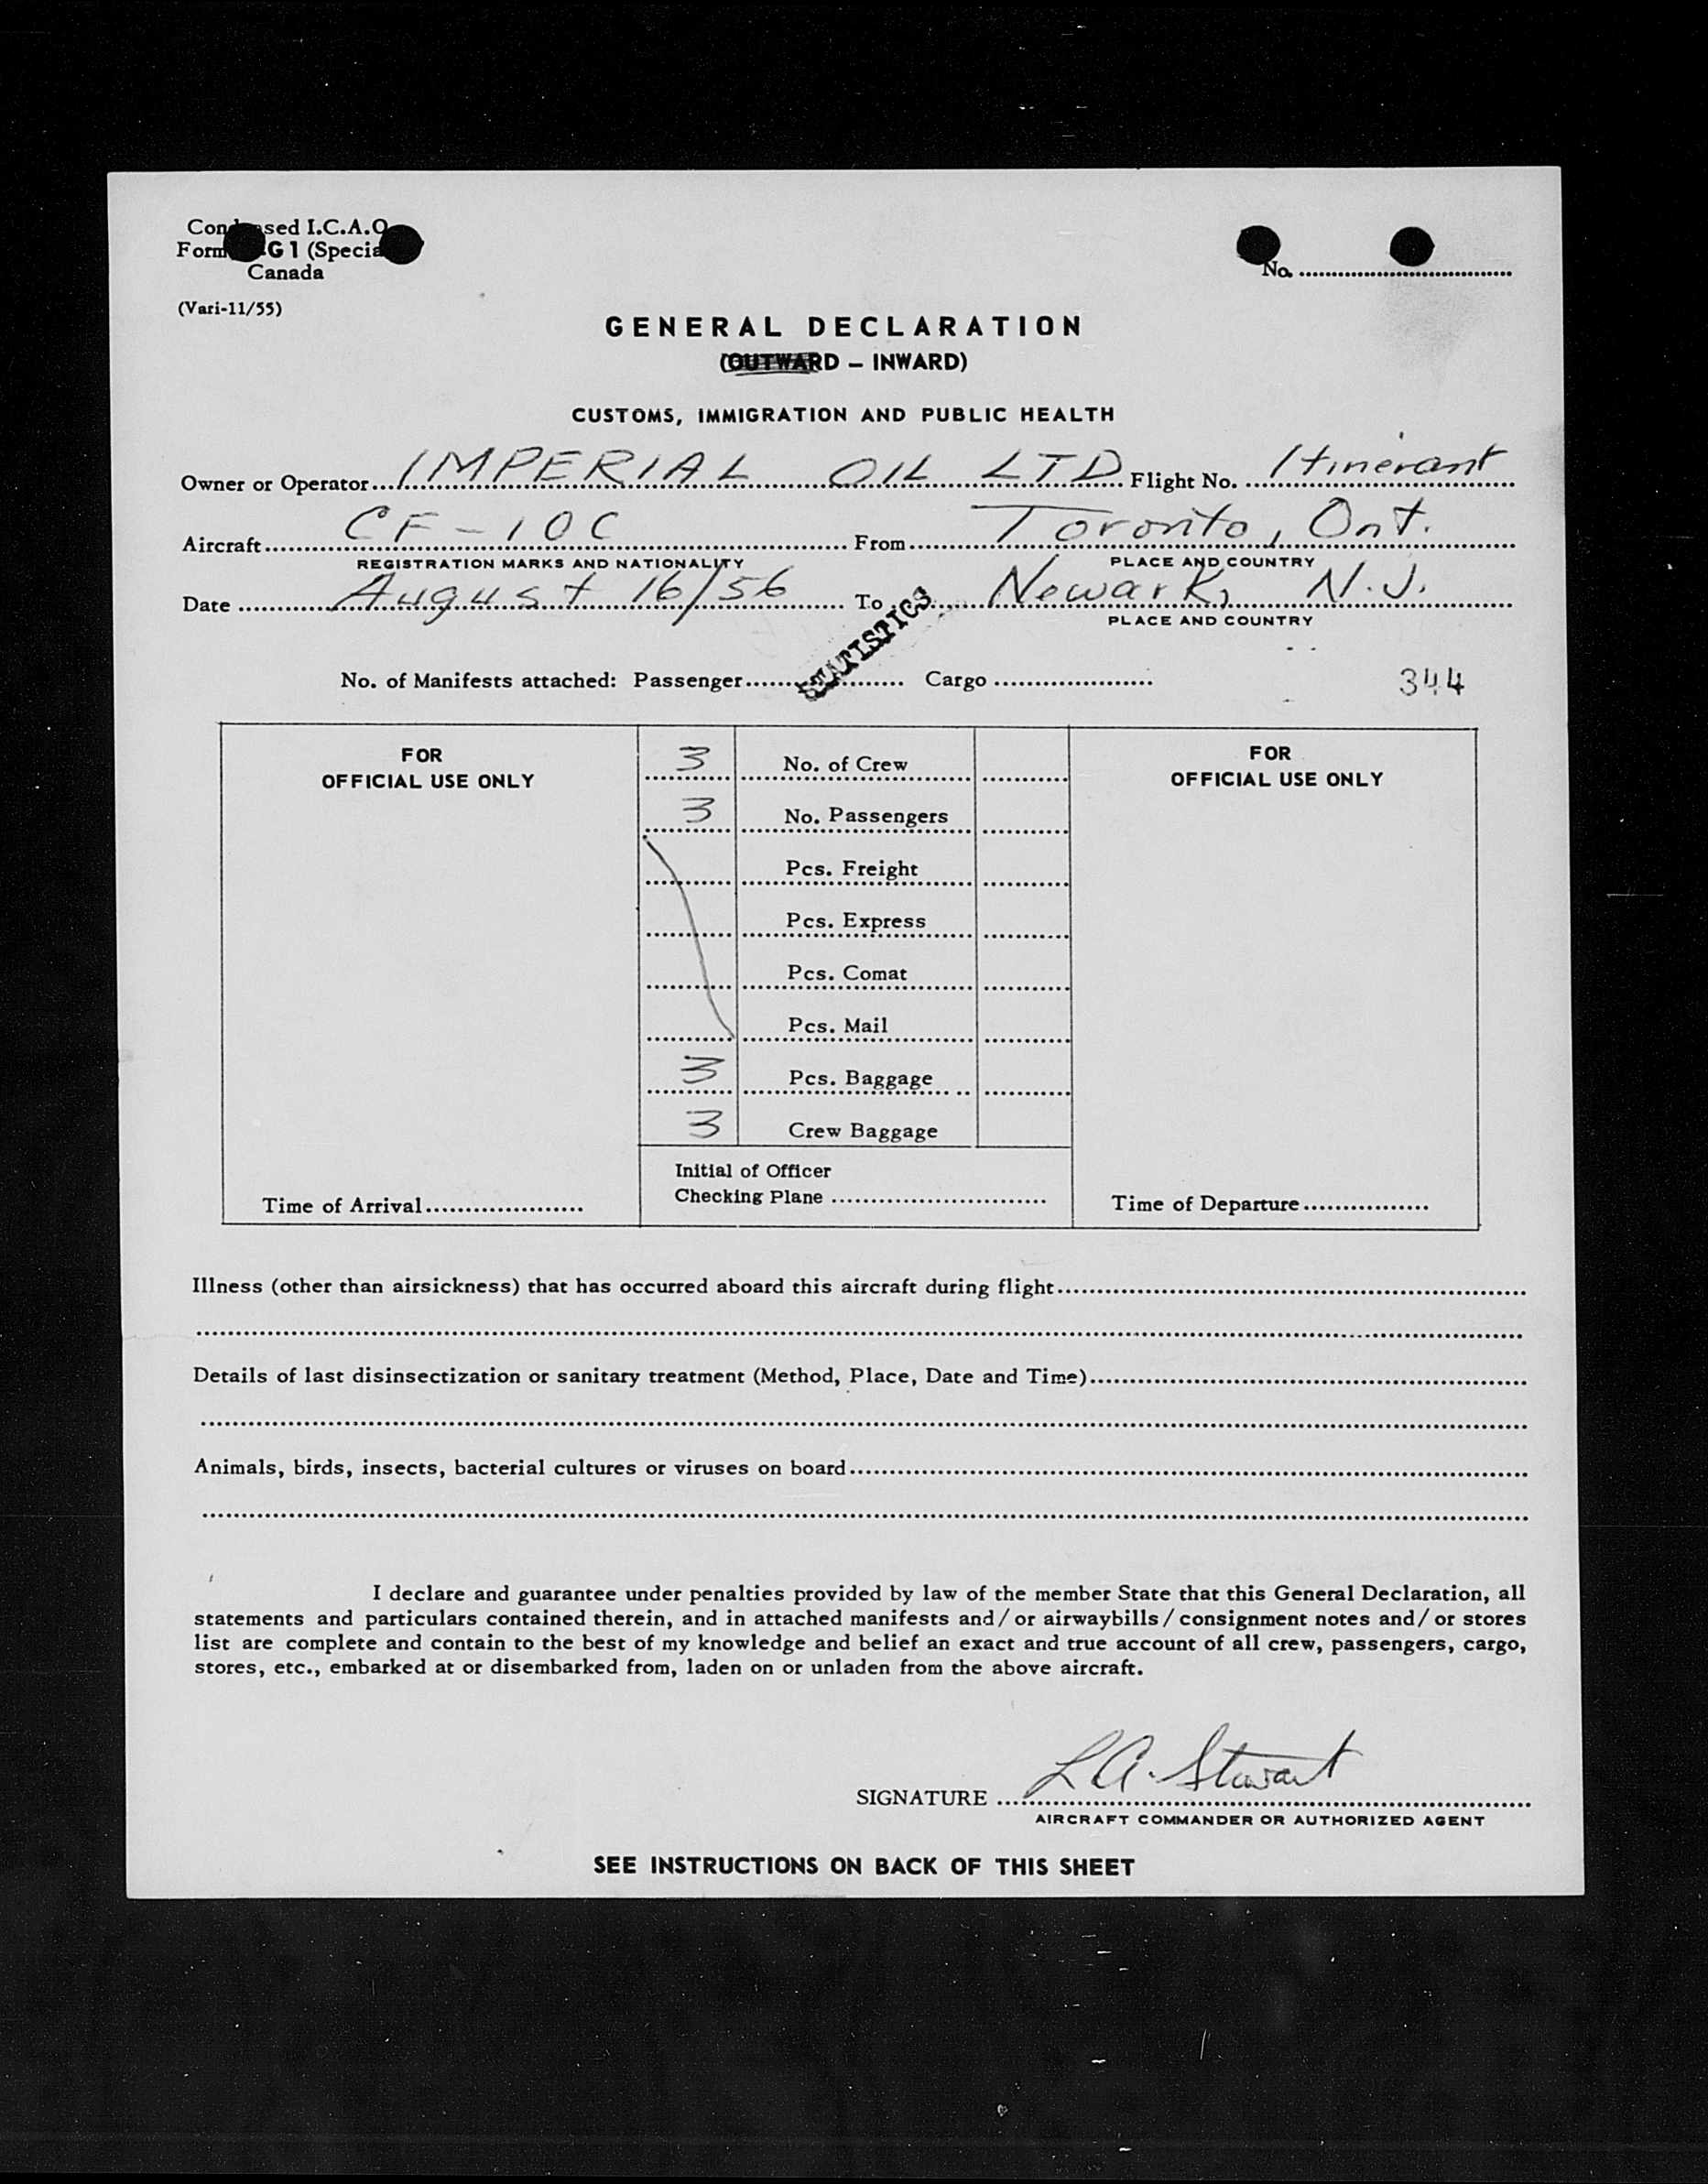 Condensed I.C.A.O.
Form G 1 (Special
Canada
No.
(Vari-11/55)
GENERAL DECLARATION
(OUTWARD – INWARD)
CUSTOMS, IMMIGRATION AND PUBLIC HEALTH
Owner or Operator IMPERIAL OIL LTD Flight No. Itinerant
Aircraft CF-IOC From Toronto, Ont.
REGISTRATION MARKS AND NATIONALITY PLACE AND COUNTRY
Date August 16/56 To Newark, N.J.
PLACE AND COUNTRY
STATISTICS
No. of Manifests attached: Passenger Cargo 344
FOR
OFFICIAL USE ONLY
3 No. of Crew
3 No. Passengers
Pcs. Freight
Pcs. Express
Pcs. Comat
Pcs. Mail
3 Pcs. Baggage
3 Crew Baggage
FOR
OFFICIAL USE ONLY
Time of Arrival
Initial of Officer
Checking Plane
Time of Departure
Illness (other than airsickness) that has occurred aboard this aircraft during flight
Details of last disinsectization or sanitary treatment (Method, Place, Date and Time)
Animals, birds, insects, bacterial cultures or viruses on board
I declare and guarantee under penalties provided by law of the member State that this General Declaration, all
statements and particulars contained therein, and in attached manifests and/or airwaybills/consignment notes and/or stores
list are complete and contain to the best of my knowledge and belief an exact and true account of all crew, passengers, cargo,
stores, etc., embarked at or disembarked from, laden on or unladen from the above aircraft.
SIGNATURE L A. Stewart
AIRCRAFT COMMANDER OR AUTHORIZED AGENT
SEE INSTRUCTIONS ON BACK OF THIS SHEET